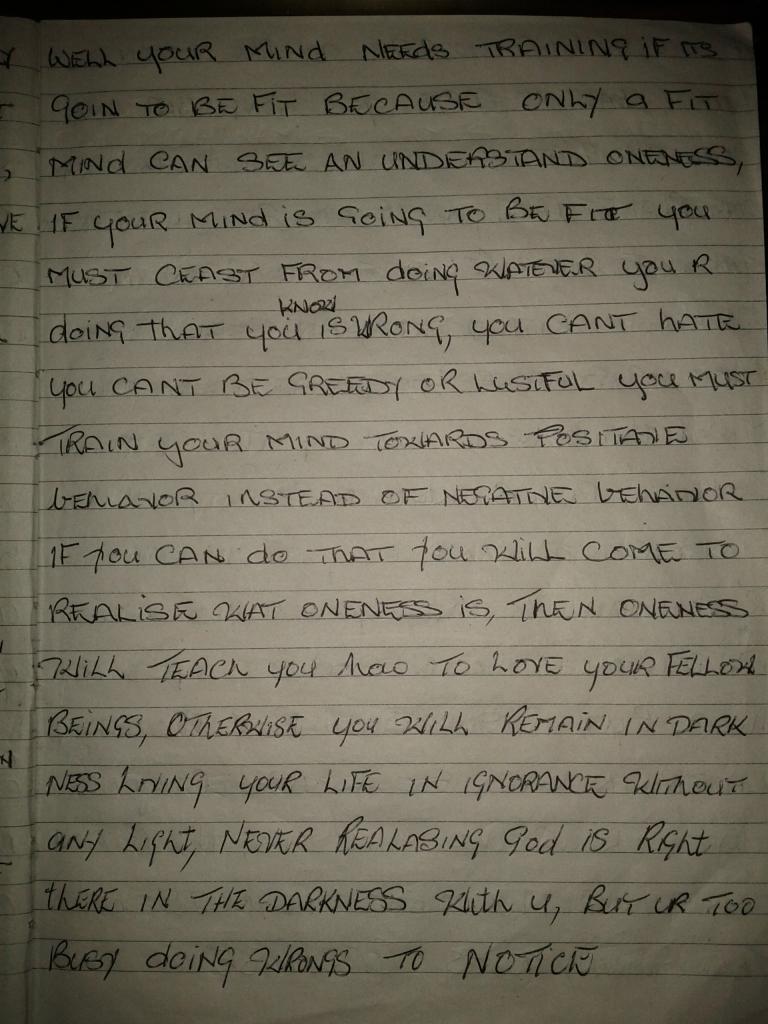 WELL YOUR MIND NEEDS TRAINING iF ITS
GOIN TO BE FIT BECAUSE ONLY a FIT
MINd CAN SEE AN UNDERSTAND ONENESS,
VE IF YOUR MINd iS GOiNG TO BE FIT YOU
MUST CEAST FROM doing WATEVER YOU R
KNOW
dOiNG ThAT YOU IS WRONG, YOU CANT hATE
YOU CANT BE GREEDY OR LUSTFUL YOU MUST
TRAIN YOUR MIND TOWARDS POSITAVE
behaVOR INSTEAD OF NEGATIVE behAVIOR
IF YOU CAN do THAT YOU WILL COME TO
REALISE WAT ONENESS iS, ThEN ONENESS
WILL TEACh YOU how TO LOVE YOUR FELLOW
BEiNGS, OThERWISE YOU WILL REMAIN IN DARK
NESS LIVING YOUR LIFE IN IGNORANCE WIThOUT
aNY LighT, NEVER REALASING God iS Right
thERE IN THE DARKNESS With U, BUT UR TOO
BUSY doiNG WRONGS TO NOTICE